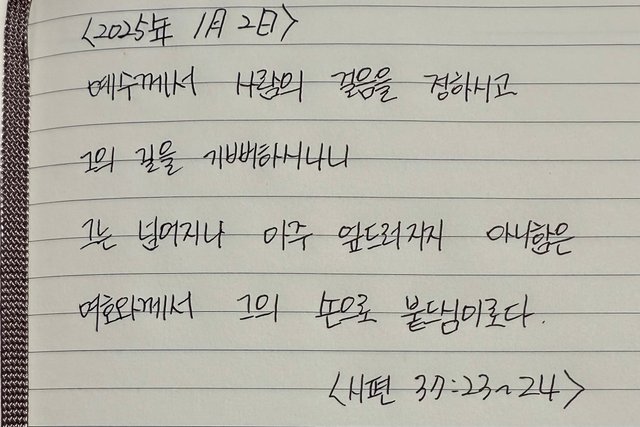 <2025年 1月 2日>
예수께서 사람의 걸음을 정하시고
그의 길을 기뻐하시나니
그는 넘어지나 아주 엎드러지지 아니함은
여호와께서 그의 손으로 붙드심이로다.
<시편 37:23~24>